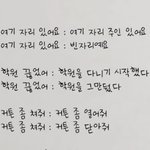 여기 자리 있어요 : 여기 자리 주인 있어요
여기 자리 있어요 : 빈자리에요
학원 끊었어 : 학원을 다니기 시작했다
학원 끊었어 : 학원을 그만뒀다
커튼 좀 쳐줘 : 커튼 좀 열어줘
커튼 좀 쳐줘 : 커튼 좀 닫아줘